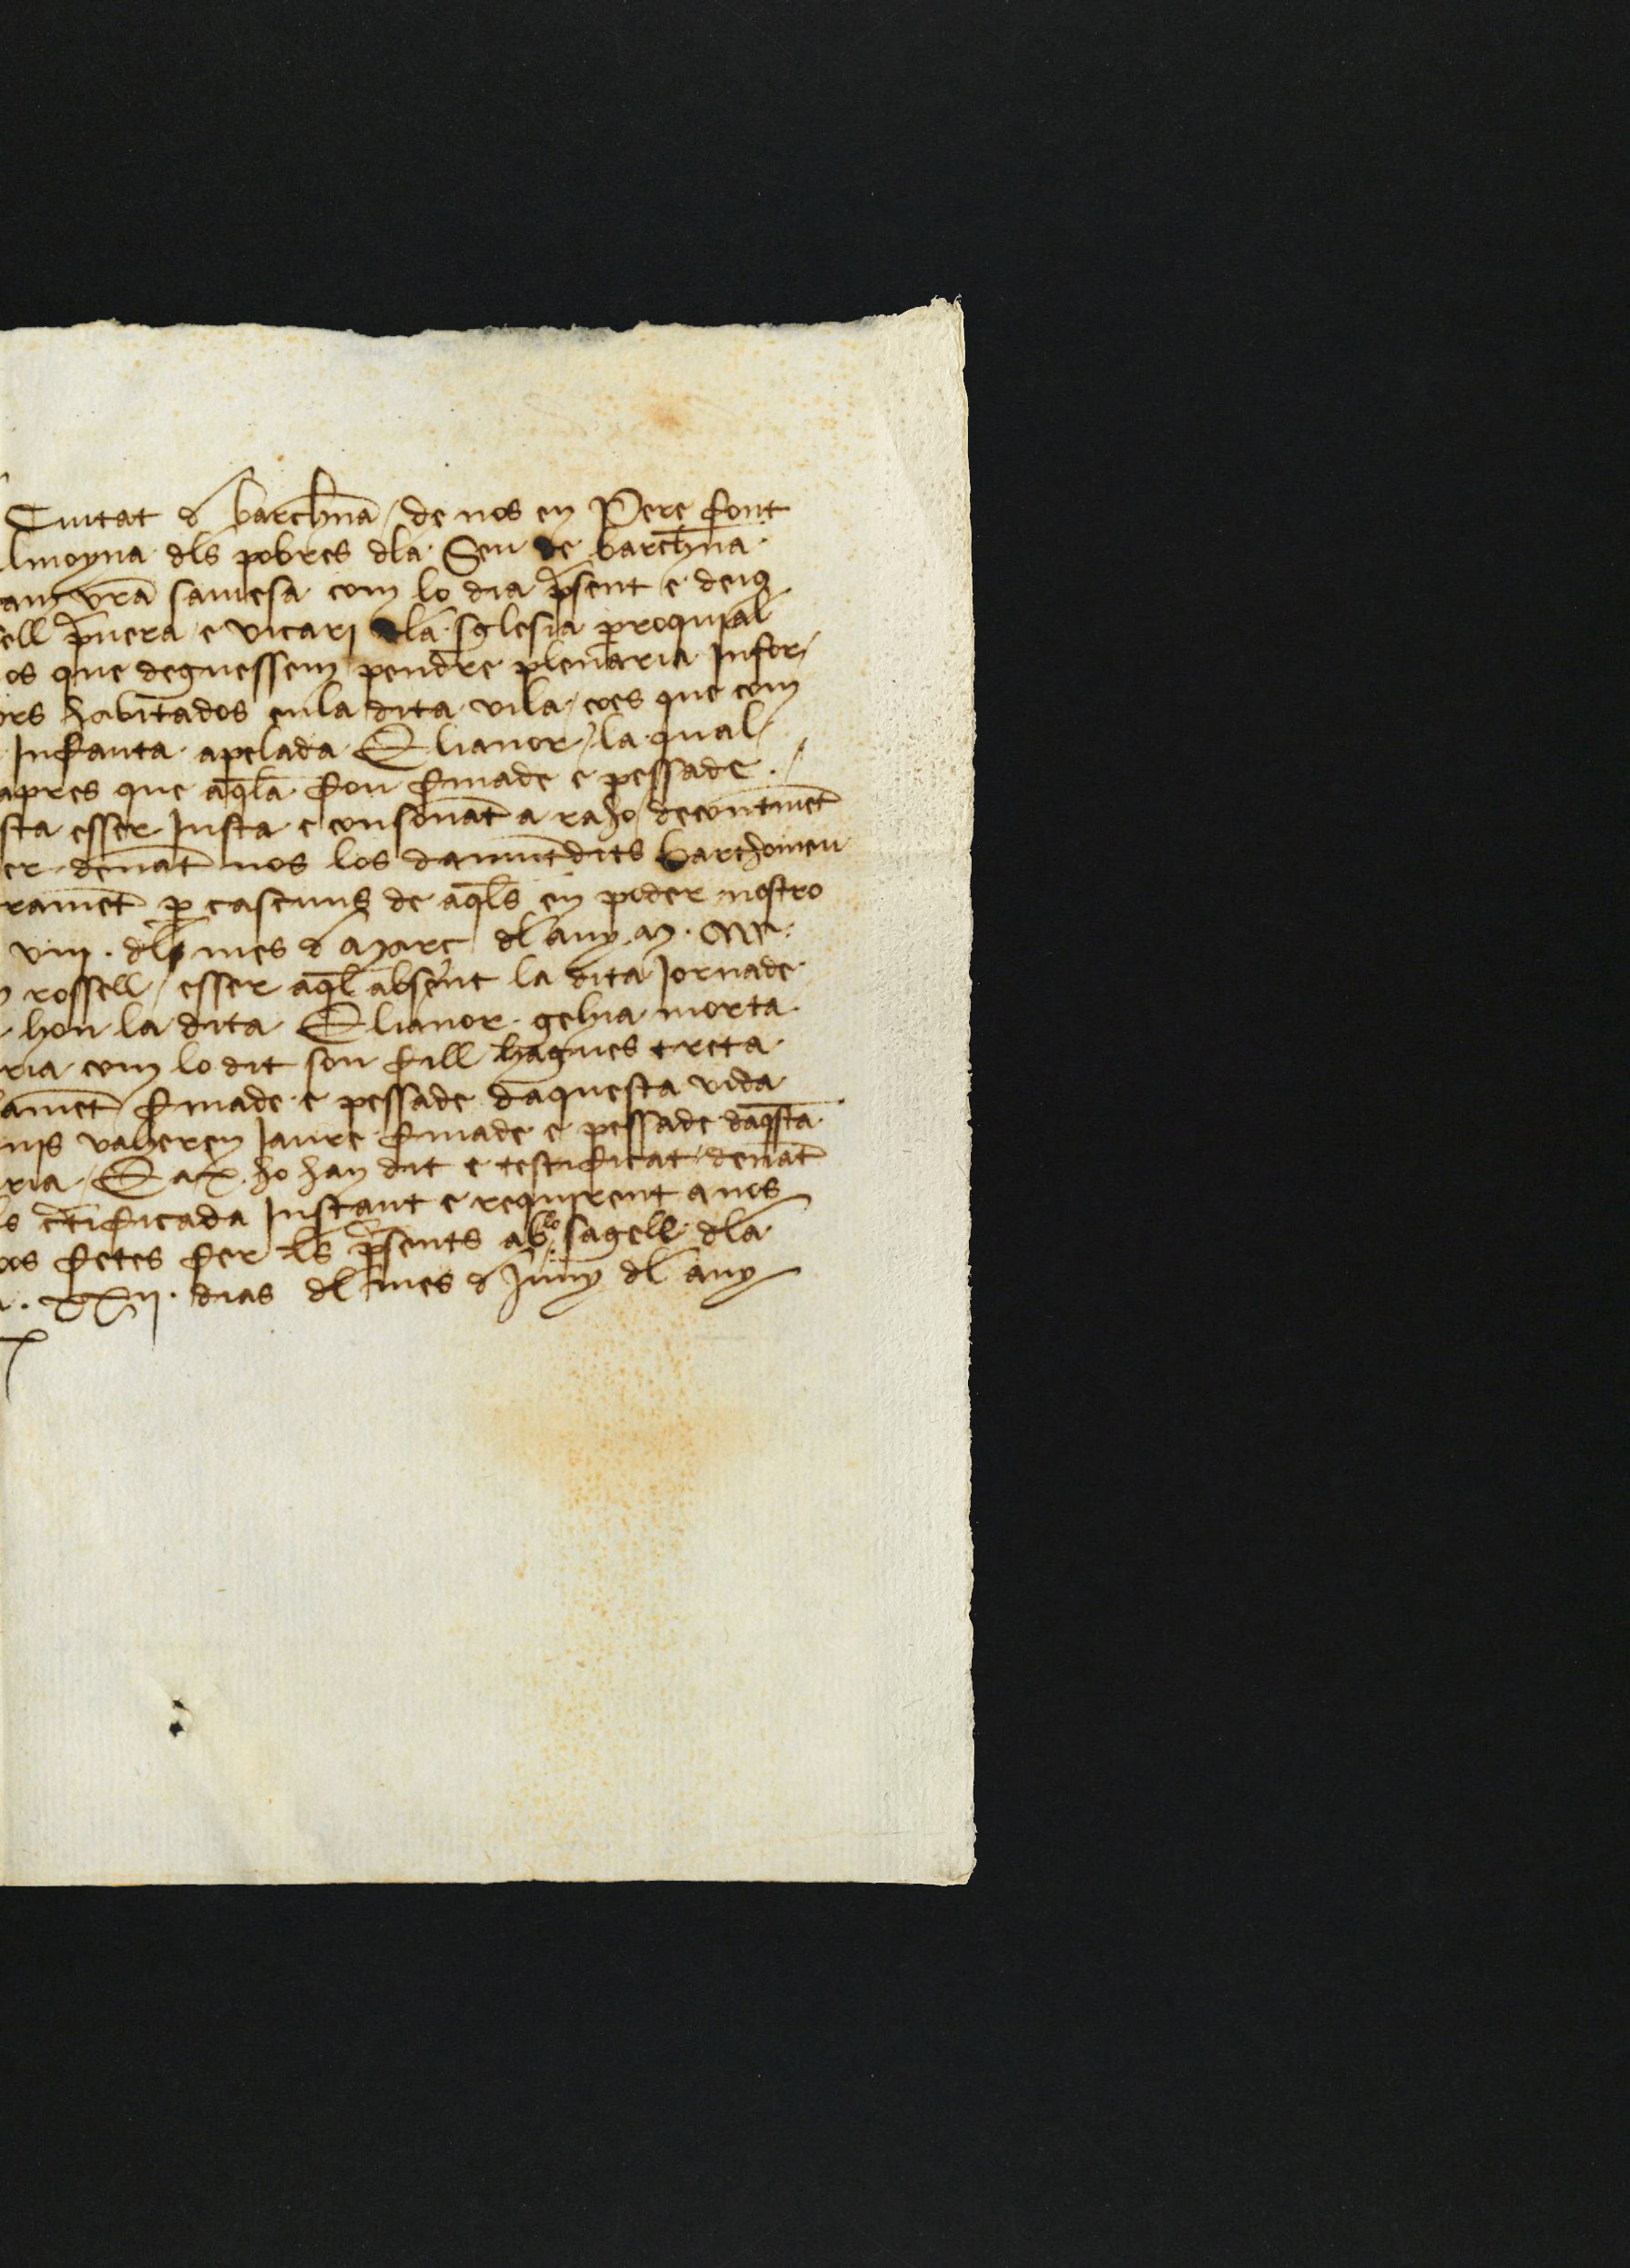 Ciutat d barchna / de nos en Pere font
lmoyna dls pobres dla Seu de barchna
am vra saviesa com lo dia psent e deius
ell pnera e vicari dla sglesia proquial
os que deguessem pendre plenaria Infor/
ors habitados en la dita vila / ces que com
Infanta apelada Elianor / la qual /
apres que aqla fou finade e pessade /
sta esser Justa e consonat a raho / decontinet
er denat nos los damutdits barthomeu
ramet p cascuns de aqls en poder nostro
viii. dl mes d Marc dl any M. CCCC
rossell / esser aql absent la dita Jornade
hon la dita Elianor gehia morta
ria com lo dit son fill hagues treta
amet finade e pessade daquesta vida
nis vaheren Jaure finade e pessade daqsta
ria / E ax ho han dit e testificat denat
s ctificada Instant e requirent a nos
os fetes fer ls psents ab lo sagell dla
. XXii. dias dl mes d Juny dl any